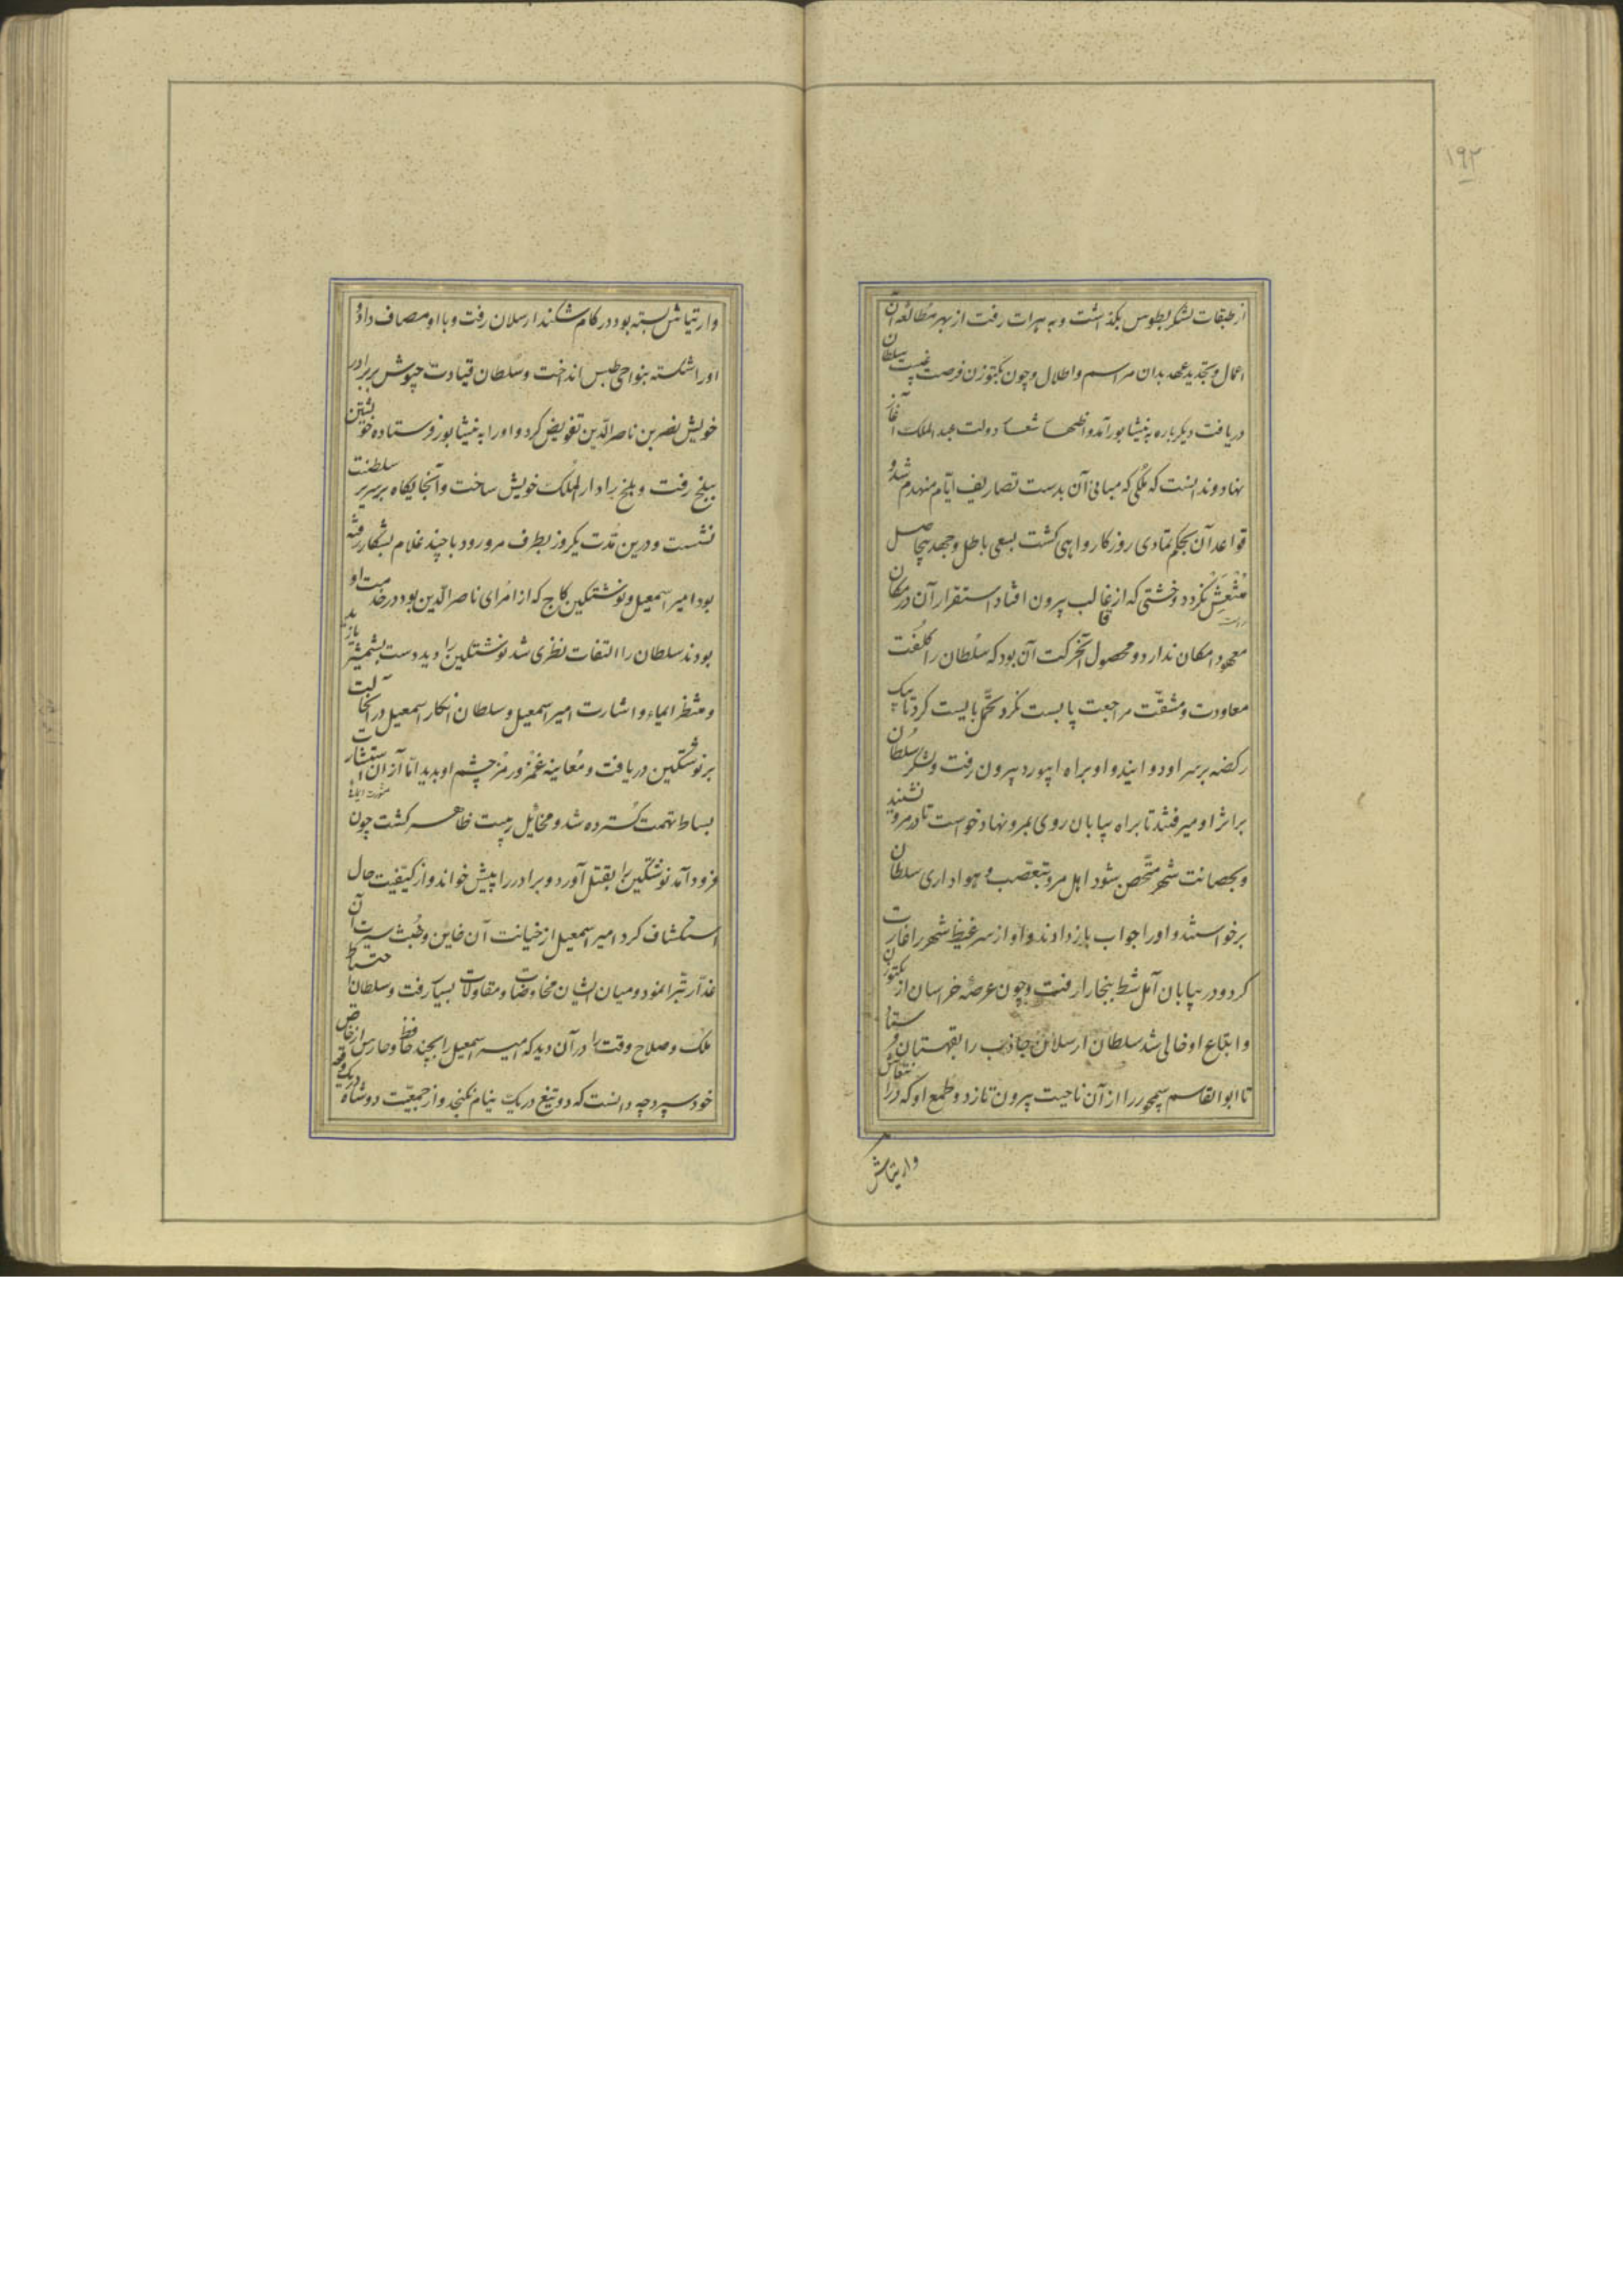 ۱۹۲
از طبقات لشکر بطوس بگذاشت و به هرات رفت از بهر مطالعه آن
اعمال و تجدید عهد بدان مراسم و اطلال و چون بکتوزن فرصت غیبت سلطان
دریافت دیگر باره به نیشابور آمد و اظهار شعار دولت عبد الملک آغاز
نهاد و ندانست که ملکی که مبانی آن بدست تصاریف ایام منهدم شد و
قواعد آن بحکم تمادی روزکار واهی کشت بسعی باطل و جهد بیحاصل
منتعش نکردد و خشتی که از قالب بیرون افتاد استقرار آن در مکان
معهود امکان ندارد و محصول آن حرکت آن بود که سلطان را کلفت
معاودت و مشقت مراجعت بایست کرد تحمل بایست کرد تا بیک
رکضه بر سر او دوانید و او براه ابیورد بیرون رفت و لشکر سلطان
بر اثر او میرفتند تا براه بیابان روی بمرو نهاد خواست تا در مرو نشیند
و بحصانت شهر متحصن شود اهل مرو بتعصب و هواداری سلطان
برخواستند و او را جواب باز دادند و او از سر غیظ شهر را غارت
کرد و در بیابان آمل شط ببخارا رفت و چون عرصه خراسان از بکتوزن
و اتباع او خالی شد سلطان ارسلان جاذب را بقهستان فرستاد
تا ابو القاسم سیمجور را از آن ناحیت بیرون تازد و طمع او که در انتعاش
وارتیاش
وارتیاش بسته بود در کام شکند ارسلان رفت و با او مصاف داد و
او را شکسته بنواحی طبس انداخت و سلطان قیادت جیوش بر برادر
خویش نصر بن ناصر الدین تفویض کرد و او را به نیشابور فرستاده خویشتن
ببلخ رفت و بلخ را دار الملک خویش ساخت و آنجایکاه بر سریر سلطنت
نشست و درین مدت یکروز بطرف مرورود با چند غلام بشکار رفته
بود امیر اسمعیل و نوشتکین کاج که از امرای ناصر الدین بود در خدمت او
بودند سلطان را التفات نظری شد نوشتکین را دید دست بشمشیر یازید
و منتظر ایماء و اشارت امیر اسمعیل و سلطان انکار اسمعیل در آنحالت
بر نوشتکین دریافت و معاینه غمز و رمز چشم او بدید اما از آن استشارت
بساط تهمت کسترده شد و مخائل ریبت ظاهر کشت چون
فرود آمد نوشتکین را بقتل آورد و برادر را پیش خواند و از کیفیت حال
استکشاف کرد امیر اسمعیل از خیانت آن خاین و خبث سیرت آن
غدار تبرا نمود و میان ایشان مخاوضات و مقاولات بسیار رفت و سلطان احتیاط
ملک و صلاح وقت را در آن دید که امیر اسمعیل را بچند حافظ و حارس از خاص
خود سپرد چه دانست که دو تیغ در یک نیام نکنجد و از جمعیت دو شاه در یک رقعه